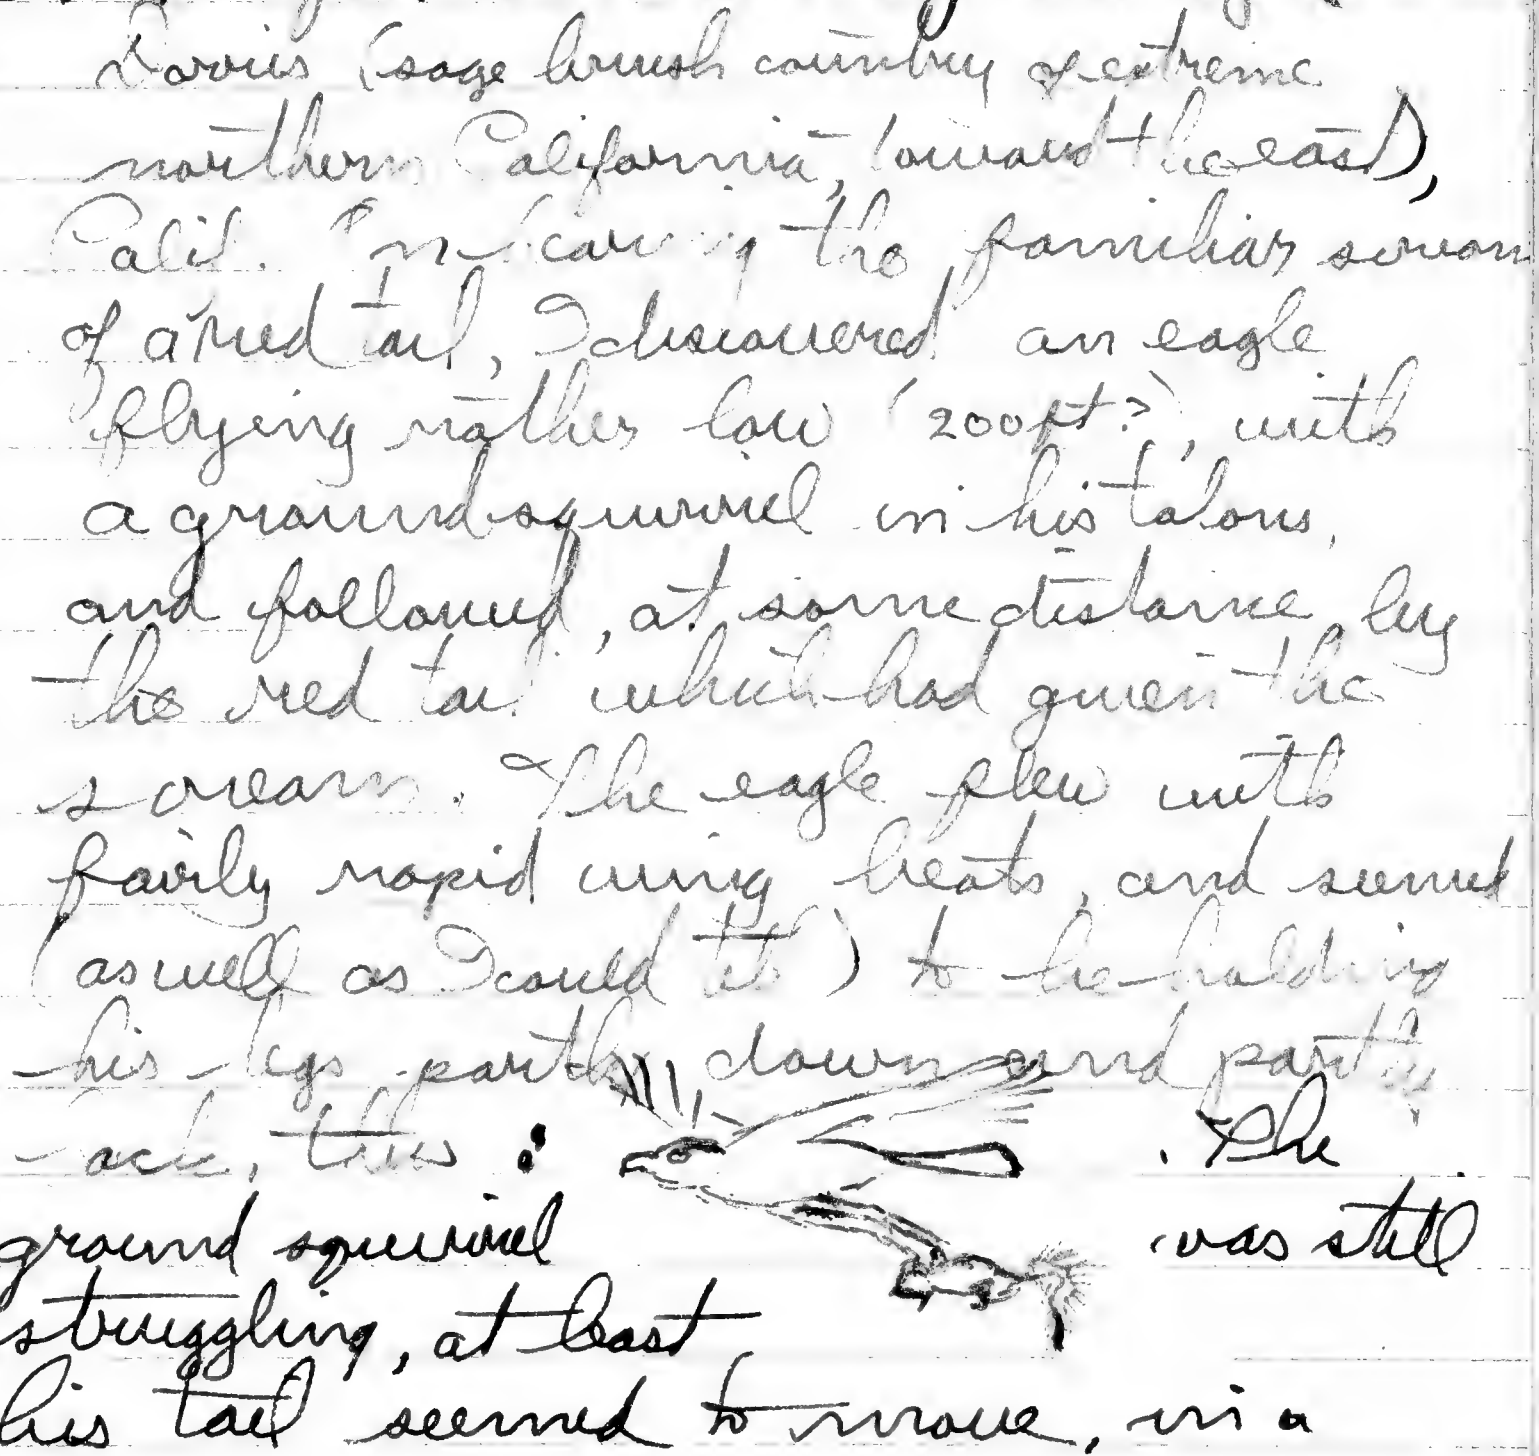 Dorris (sage brush country of extreme
northern California, toward the east),
Calif. On hearing the familiar scream
of a red tail, I discovered an eagle
flying rather low (200 ft?), with
a ground squirrel in his talons,
and followed, at some distance, by
the red tail which had given the
scream. The eagle flew with
fairly rapid wing beats, and seemed
(as well as I could tell) to be holding
his legs partly down and partly
back, thus : . The
ground squirrel was still
struggling, at least
his tail seemed to move, in a